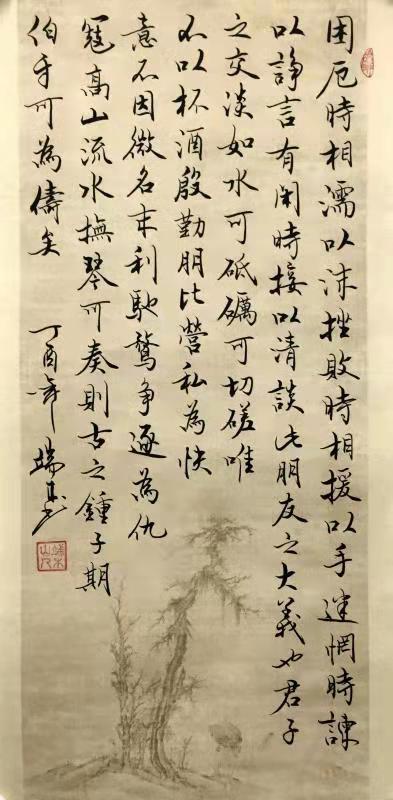 困厄時相濡以沫挫敗時相援以手迷惘時諫
以諍言有闲時接以清談此朋友之大義也君子
之交淡如水可砥礪可切磋唯
不以杯酒殷勤朋比營私為快
意不因微名末利馳騖爭逐為仇
寇高山流水撫琴可奏則古之鍾子期
伯牙可為儔矣
丁酉年端木書
端木
山人